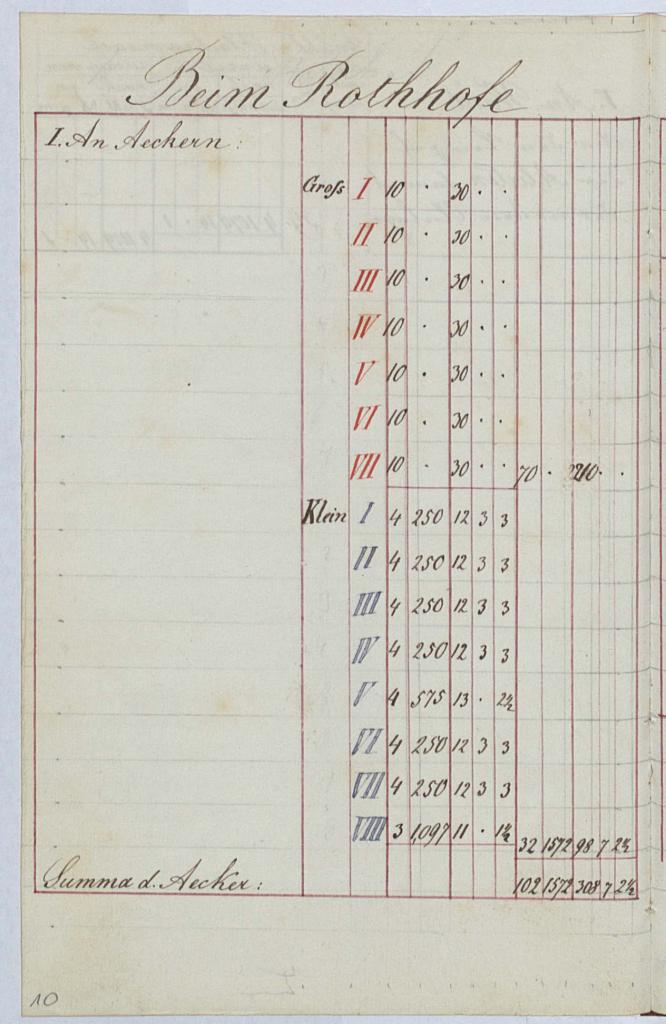 Beim Rothhofe
I. An Aeckern:
Gross I 10 . 30 . .
II 10 . 30 . .
III 10 . 30 . .
IV 10 . 30 . .
V 10 . 30 . .
VI 10 . 30 . .
VII 10 . 30 . . 70 . 210 . .
Klein I 4 250 12 3 3
II 4 250 12 3 3
III 4 250 12 3 3
IV 4 250 12 3 3
V 4 575 13 . 2½
VI 4 250 12 3 3
VII 4 250 12 3 3
VIII 3 1,097 11 . 1½ 32 1572 98 7 2½
Summa d. Aecker: 102 1572 308 7 2½
10